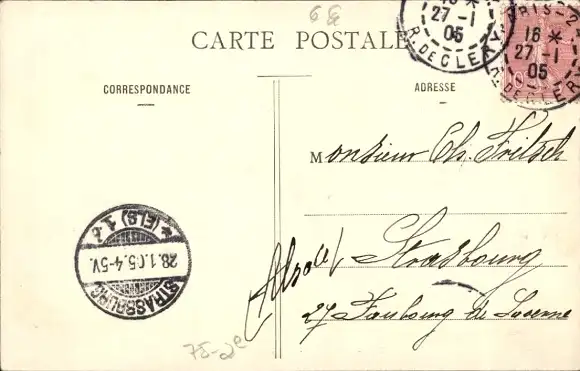 CARTE POSTALE
CORRESPONDANCE
ADRESSE
16 *
27 -1
05
R. DE CLERY
PARIS-2
16 *
27 -1
05
R. DE CLERY
Monsieur Ch. Fritsch
Strasbourg
(Alsace)
27 Faubourg de Saverne
STRASSBURG
28.1.05.4-5V.
* (ELS) 1
75-2e